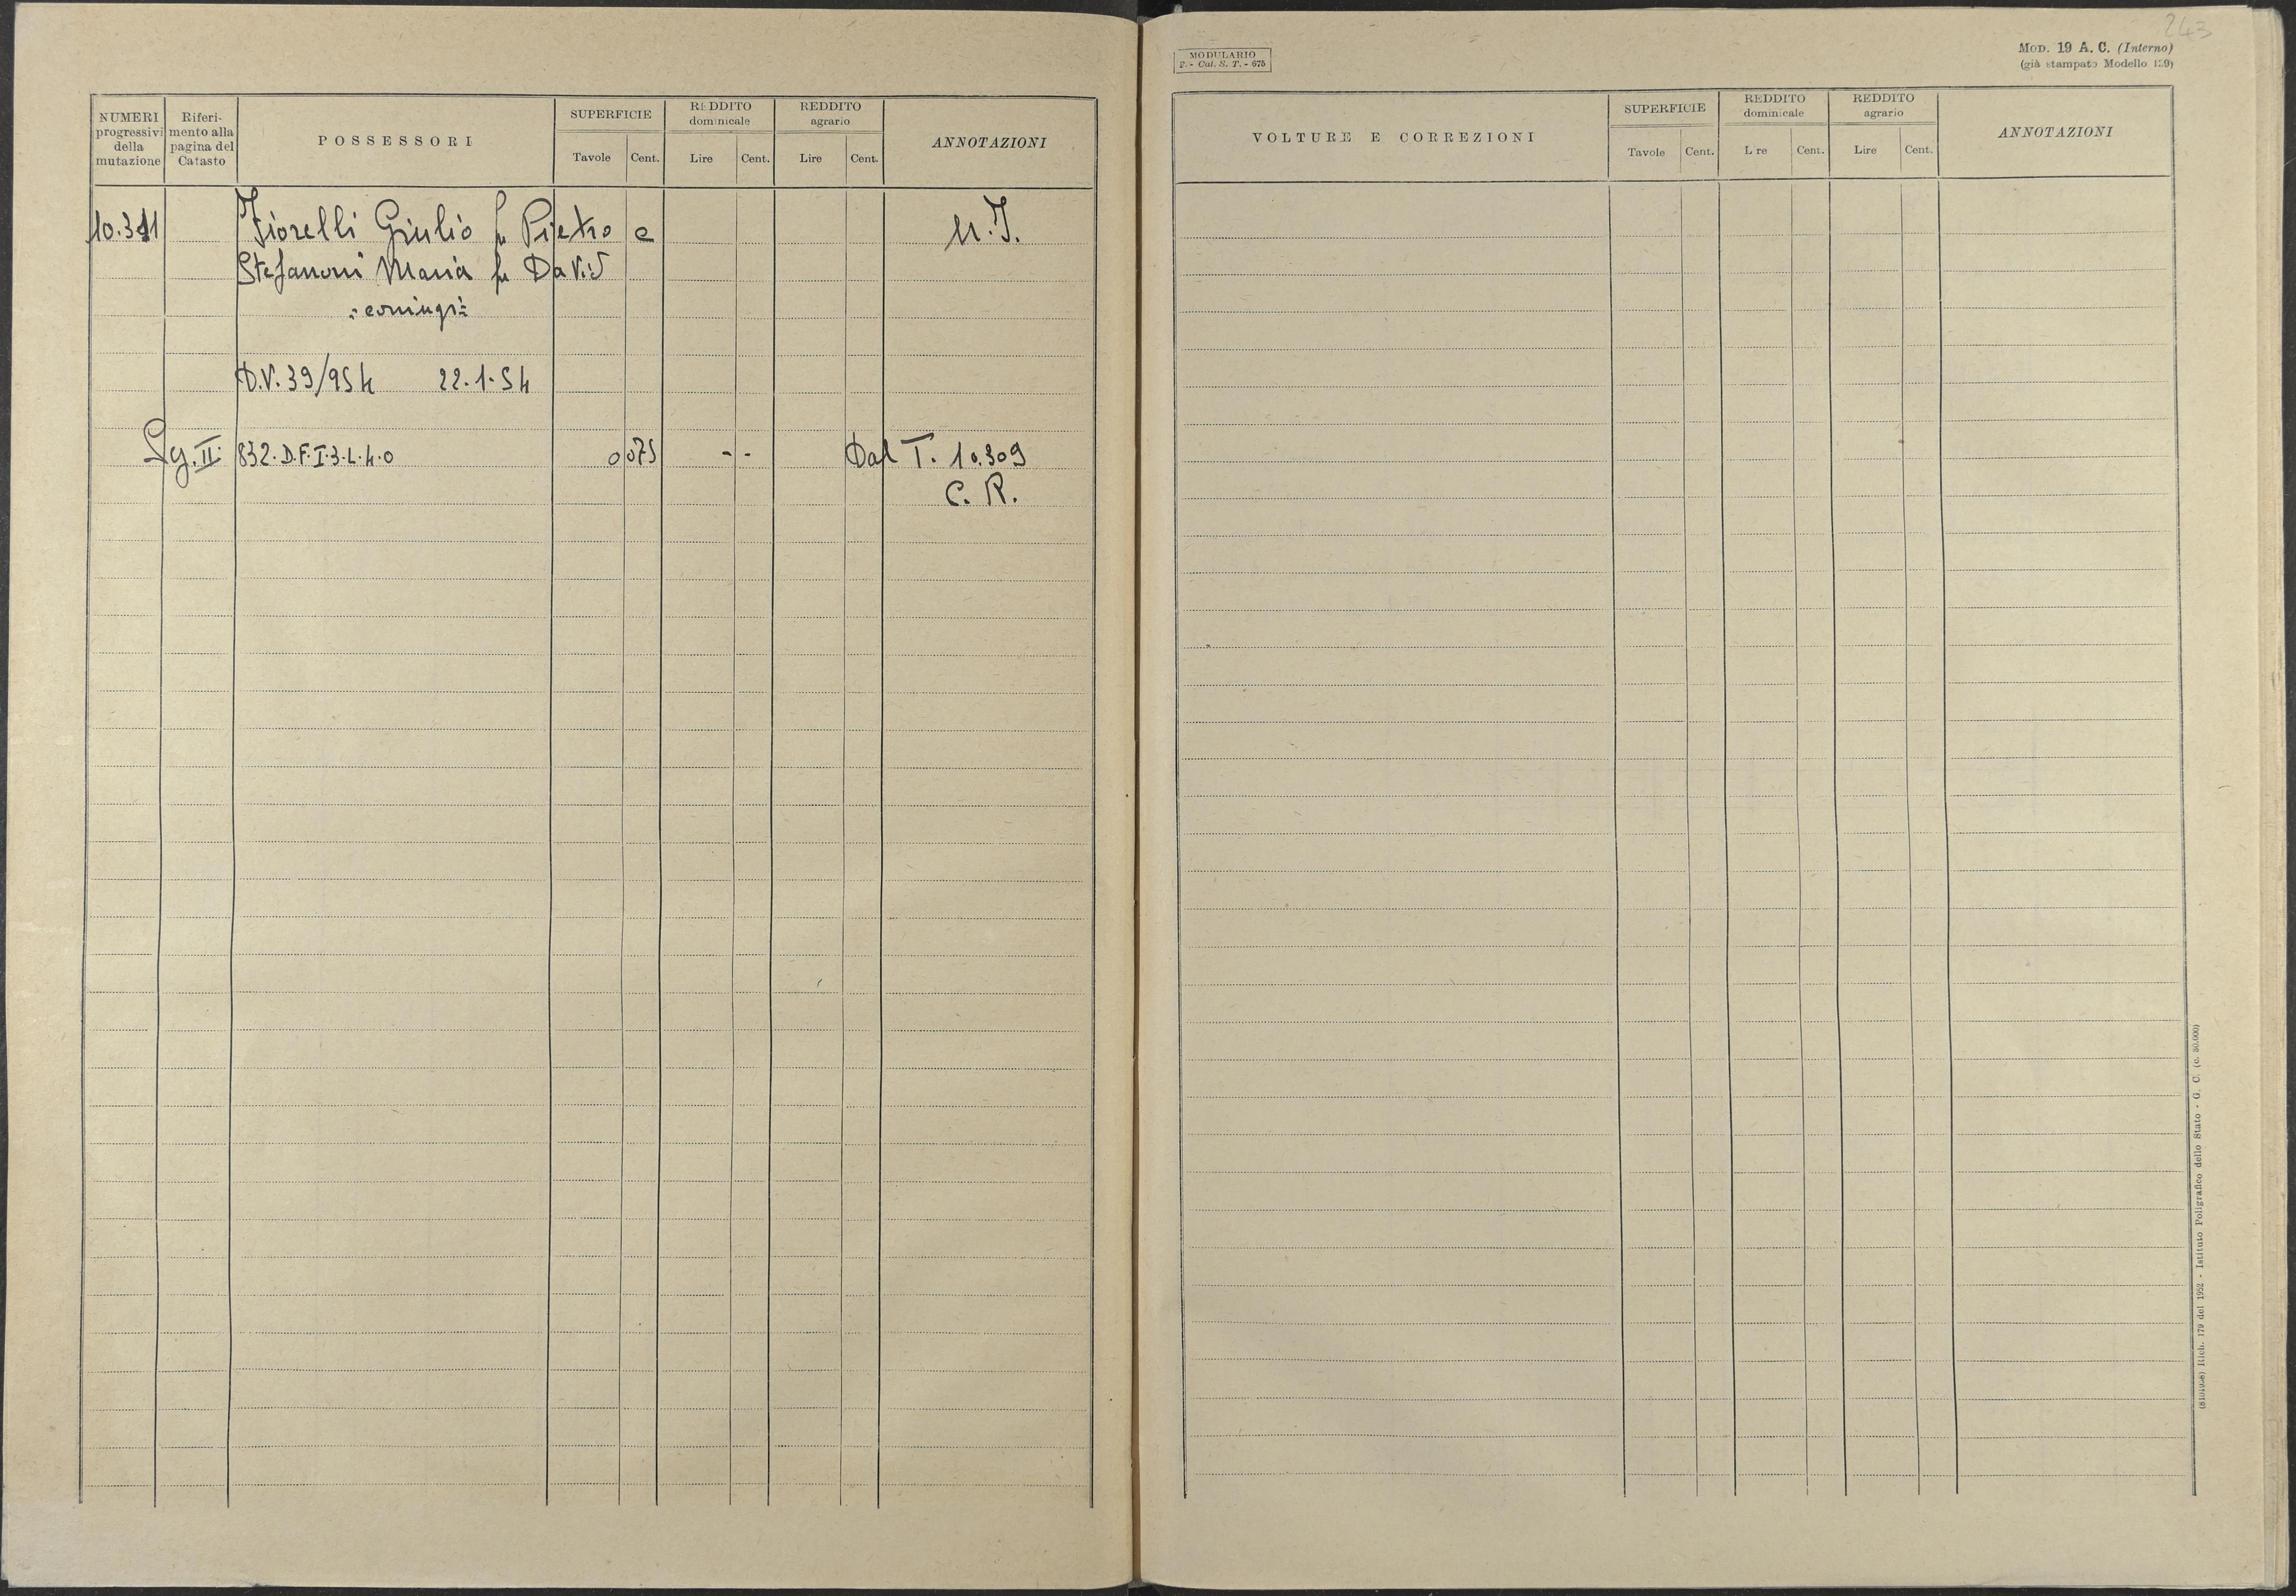 NUMERI progressivi della mutazione
Riferimento alla pagina del Catasto
POSSESSORI
SUPERFICIE
Tavole Cent.
REDDITO dominicale
Lire Cent.
REDDITO agrario
Lire Cent.
ANNOTAZIONI
10.311 Fiorelli Giulio fu Pietro e U.I.
Stefanoni Maria fu David
=coniugi=
D.V. 39/954 22.1.54
Sg. II. 832.D.F.I.3.L.4.0 0 075 - - Dal T. 10.309
C. R.
243
MODULARIO
F. - Cat. S. T. - 675
MOD. 19 A. C. (Interno)
(già stampato Modello 139)
VOLTURE E CORREZIONI
SUPERFICIE
Tavole Cent.
REDDITO dominicale
L re Cent.
REDDITO agrario
Lire Cent.
ANNOTAZIONI
Rich. 179 del 1952 - Istituto Poligrafico dello Stato - G. C. (c. 50.000)